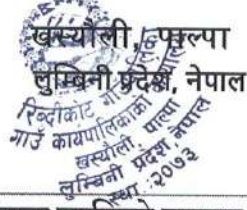 खस्यौली, पाल्पा
लुम्बिनी प्रदेश, नेपाल
रिब्दीकोट गा
गाउँ कार्यपालिकाको
खस्यौली, पाल्पा
लुम्बिनी प्रदेश, नेपाल
स्था :२०७३